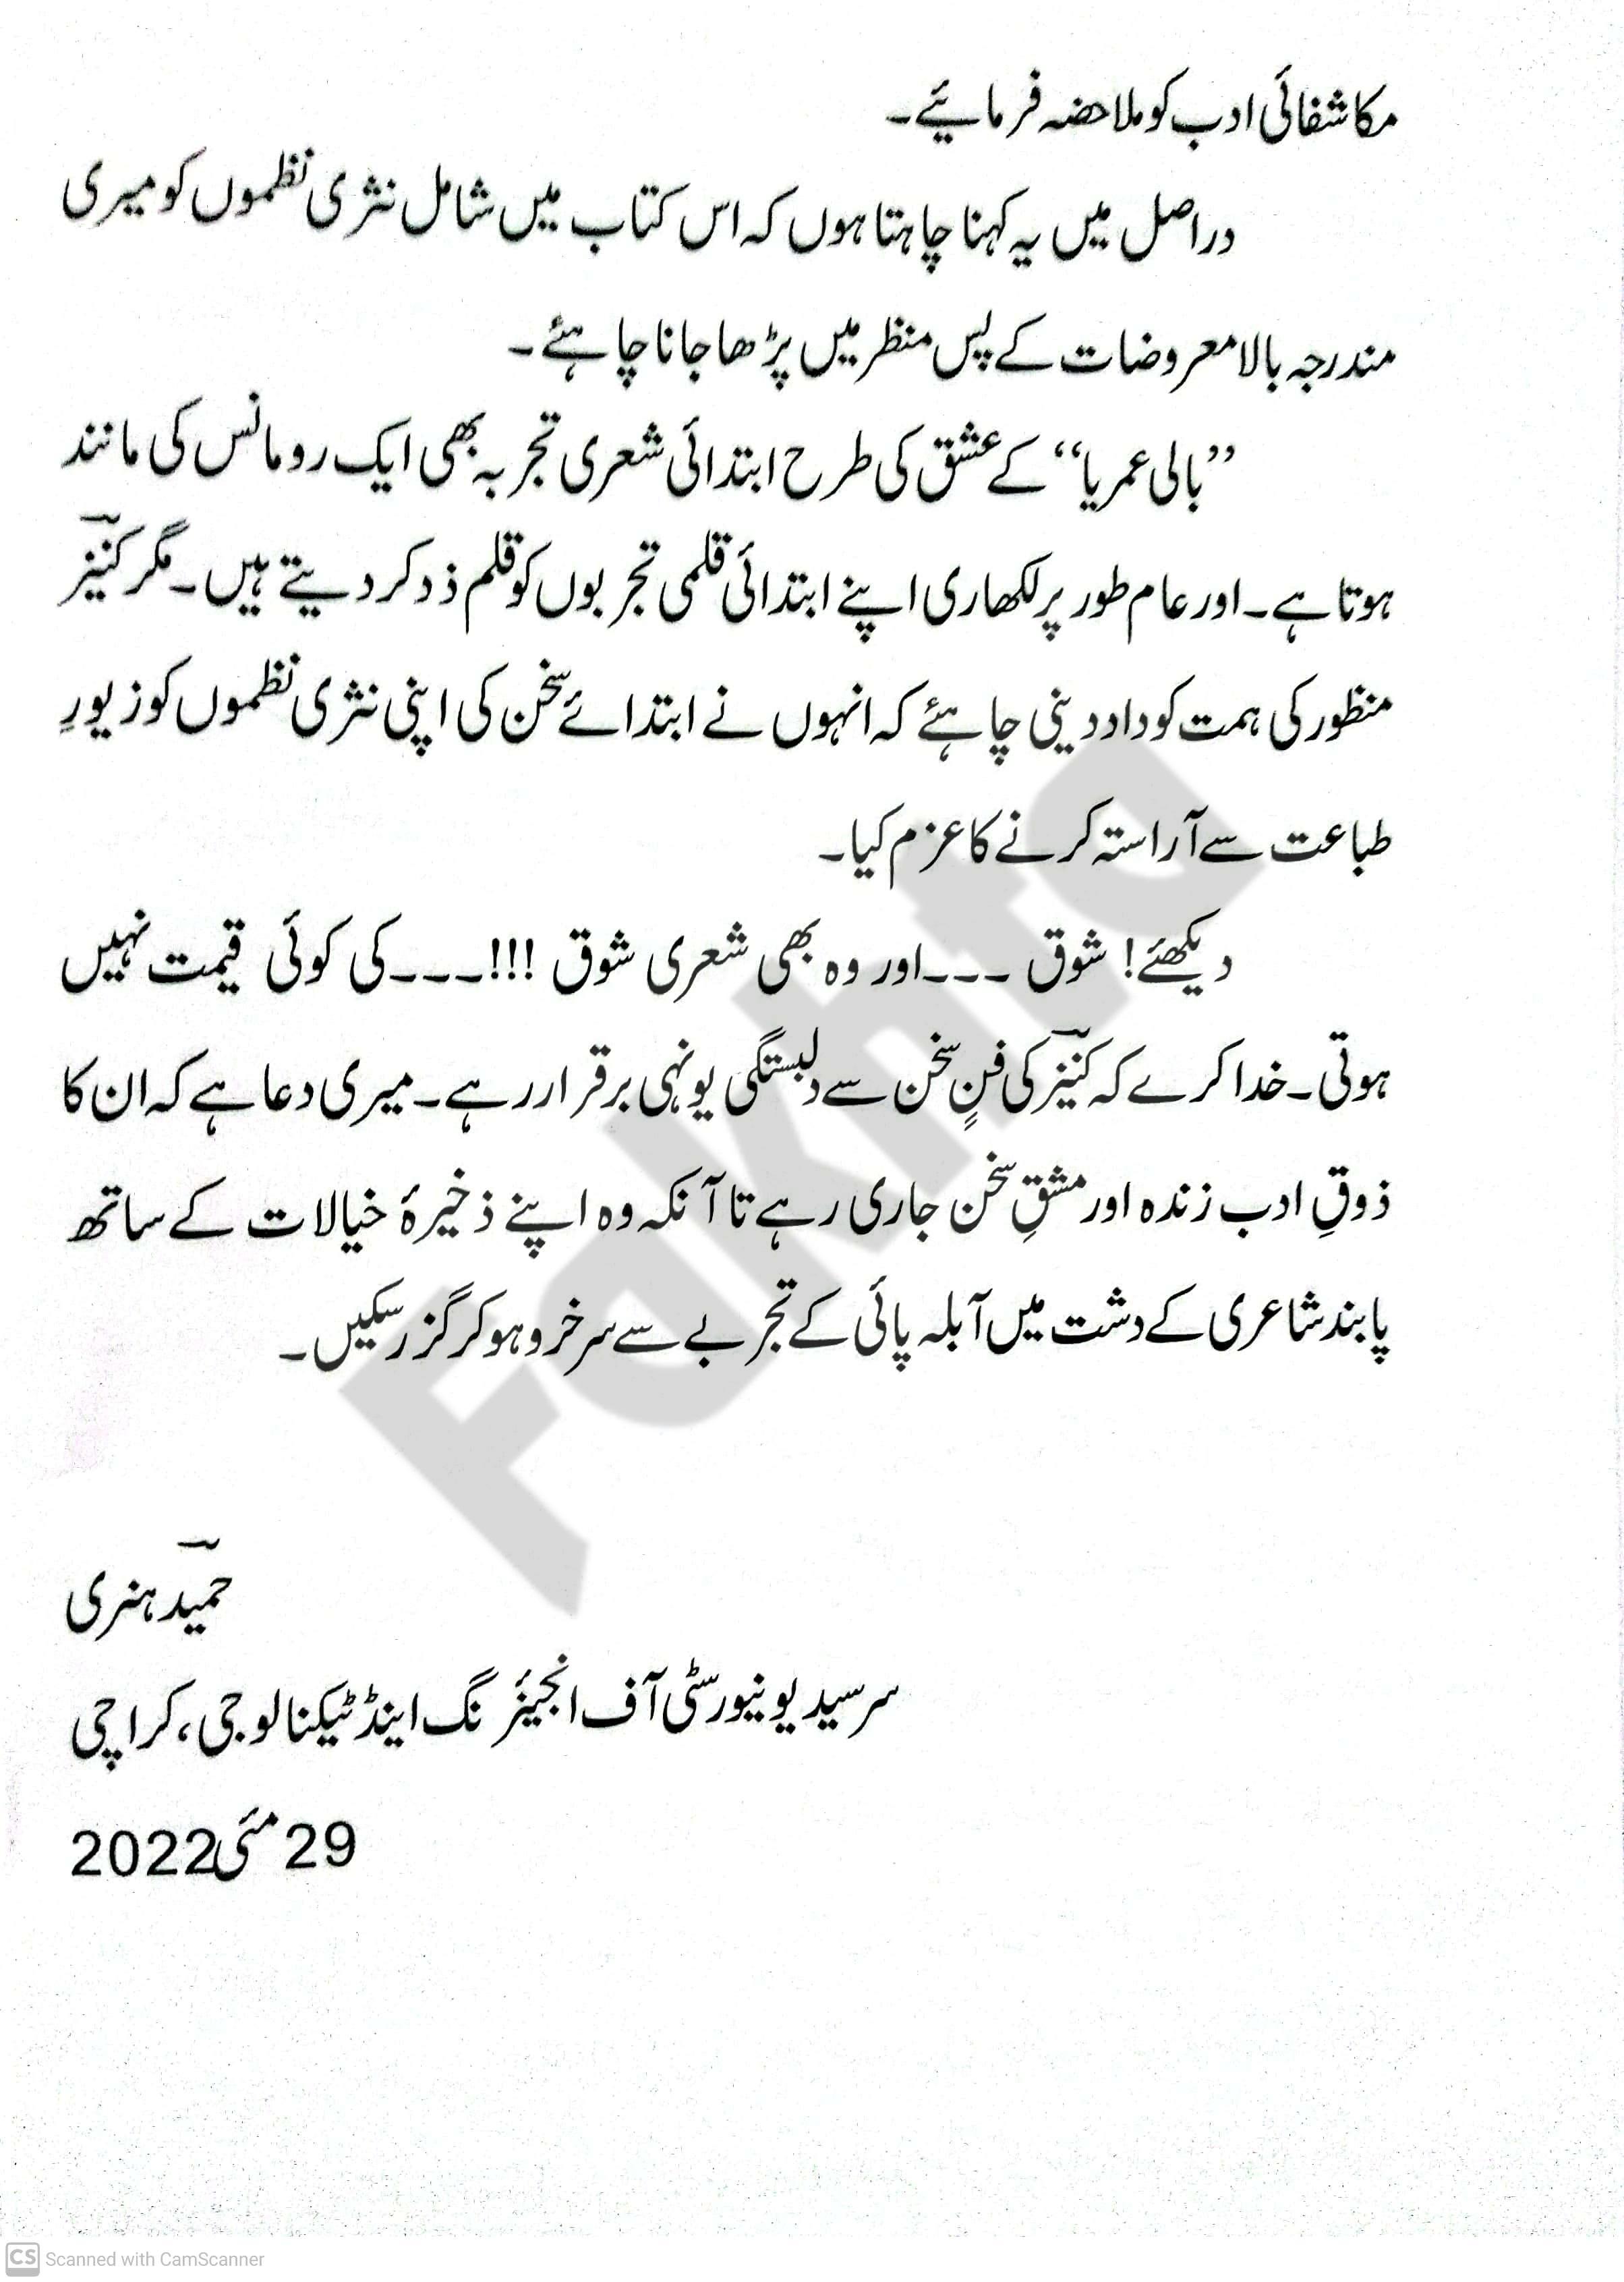 مکاشفائی ادب کو ملاحضہ فرمائیے۔
دراصل میں یہ کہنا چاہتا ہوں کہ اس کتاب میں شامل نثری نظموں کو میری
مندرجہ بالا معروضات کے پس منظر میں پڑھا جانا چاہئے۔
”بالی عمریا“ کے عشق کی طرح ابتدائی شعری تجربہ بھی ایک رومانس کی مانند
ہوتا ہے۔ اور عام طور پر لکھاری اپنے ابتدائی قلمی تجربوں کو قلم ذد کر دیتے ہیں۔ مگر کنیزؔ
منظور کی ہمت کو داد دینی چاہئے کہ انہوں نے ابتدائے سخن کی اپنی نثری نظموں کو زیورِ
طباعت سے آراستہ کرنے کا عزم کیا۔
دیکھئے! شوق ۔۔۔اور وہ بھی شعری شوق !!!۔۔۔کی کوئی قیمت نہیں
ہوتی۔ خدا کرے کہ کنیزؔ کی فنِ سخن سے دلبستگی یونہی برقرار رہے۔ میری دعا ہے کہ ان کا
ذوقِ ادب زندہ اور مشقِ سخن جاری رہے تا آنکہ وہ اپنے ذخیرۂ خیالات کے ساتھ
پابند شاعری کے دشت میں آبلہ پائی کے تجربے سے سرخرو ہو کر گزر سکیں۔
حمیدؔ ہنری
سر سید یونیورسٹی آف انجینئرنگ اینڈ ٹیکنالوجی، کراچی
29 مئی 2022
Fakhta
CS Scanned with CamScanner